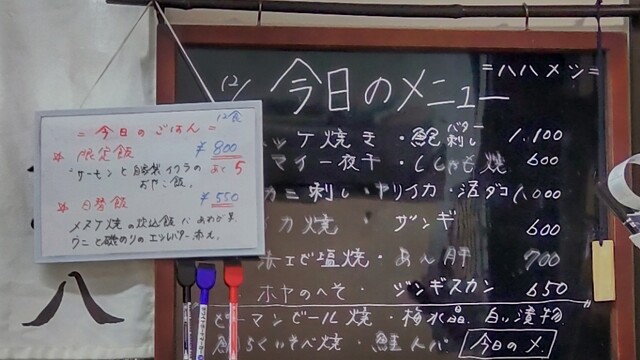 12食
= 今日のごはん =
☆ 限定飯 ¥800
サーモンと自家製イクラの あと5
おやこ飯。
☆ 日替飯 ¥550
メヌケ焼の炊込飯に
ウニと磯のりの 添え。
八
12/ 今日のメニュー =ハハメシ=
ッケ焼き・ バター刺し 1,100
マイ一夜干・ししゃも焼 600
カニ刺し・ヤリイカ・活ダコ 1,000
カ焼 ザンギ 600
ホエビ塩焼・あん肝 700
ホヤのへそ・ジンギスカン 650
ピーマンビール焼・梅水晶 白い漬物
焼・鮭 今日の〆